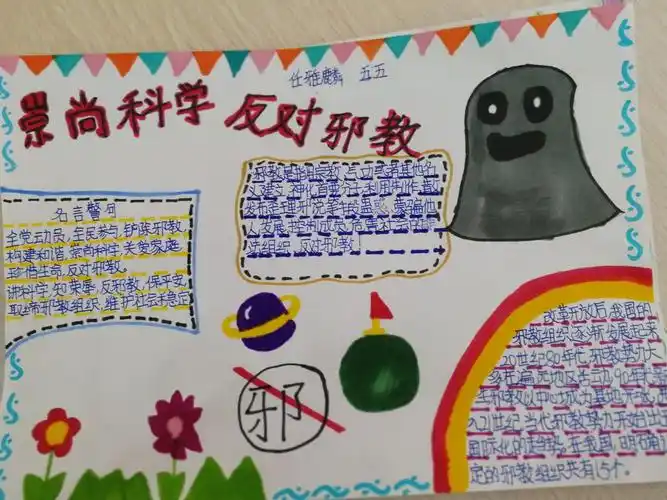 任雅麟 五五
崇尚科学 反对邪教
名言警句
全党动员,全民参与,铲除邪教,
构建和谐,崇尚科学,关爱家庭,
珍惜生命,反对邪教。
讲科学,知荣辱,反邪教,保平安,
取缔邪教组织,维护社会稳定
邪教是指冒用宗教、气功或者其他名
义建立、神化首要分子,利用制作、散
发
人发展、控制成员,危害社会的非
法组织,反对邪教!
邪
改革开放后,我国的
邪教组织逐渐发展起来
20世纪80年代,邪教势力大
多在偏远地区活动,90年代
年邪教以中心城为基地形成,进
入21世纪,当代邪教势力开始出
国际化的趋势,在我国,明确
定的邪教组织共有15个.